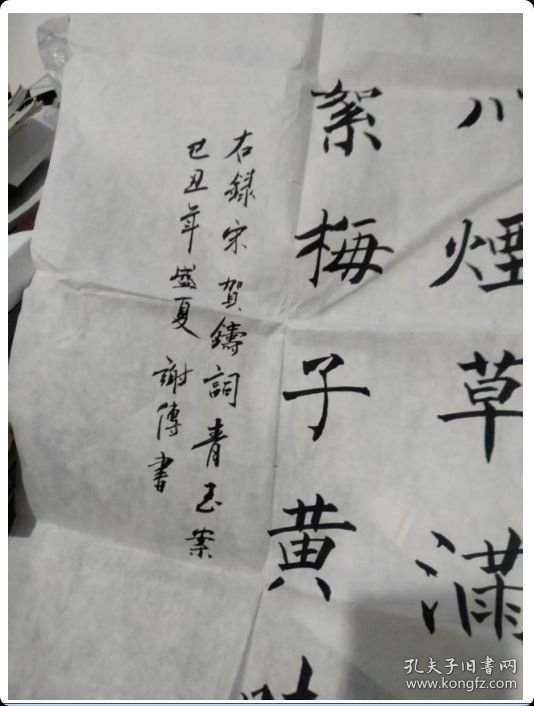 川煙草滿
絮梅子黄時
右録宋賀鑄詞青玉案
己丑年盛夏
謝傳書
孔夫子旧書网
www.kongfz.com